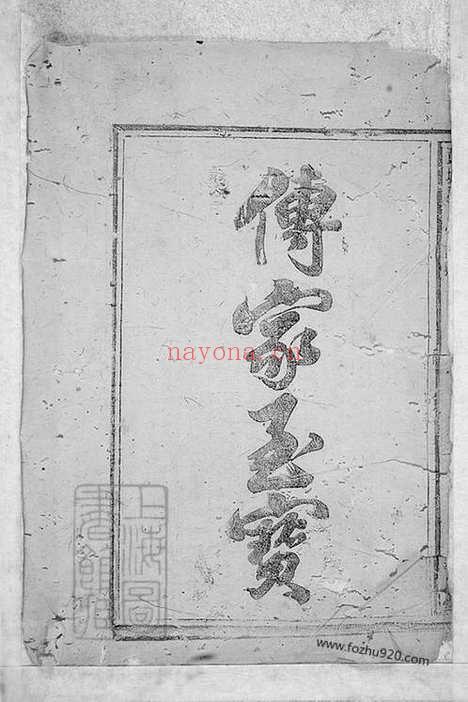 傳家玉寶
nayona.cn
上海圖
書館藏
www.fozhu920.com